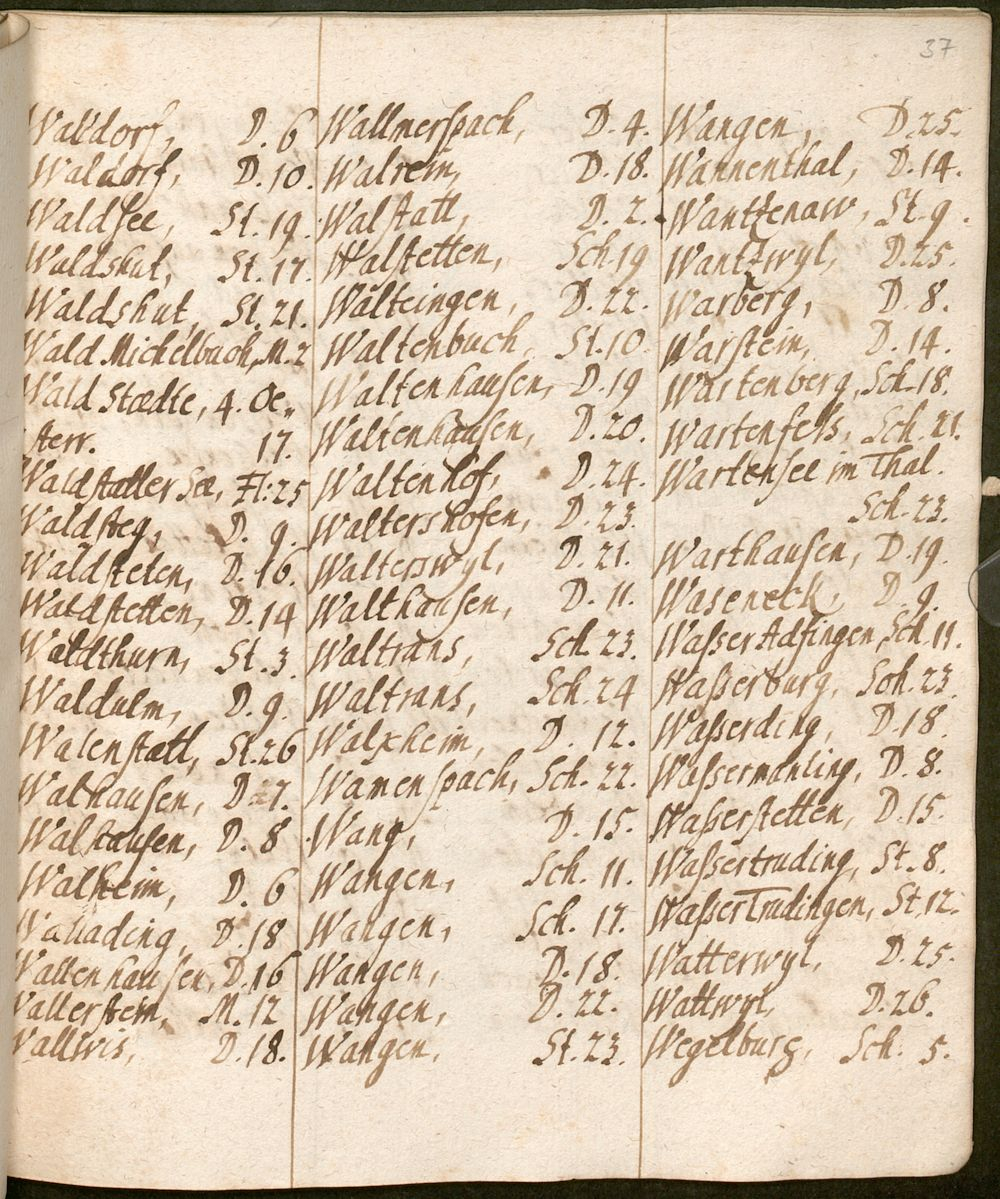 37
Waldorf, D. 6
Waldorf, D. 10.
Waldsee, St. 19.
Waldshut, St. 17.
Waldshut, St. 21.
Wald Michelbach, M. 2
Wald Stædte, 4. Oe„
sterr. 17.
Waldstatter See, Fl: 25
Waldsteg, D. 9.
Waldsteten, D. 16.
Waldstetten, D. 14
Waldthurn, St. 3.
Waldulm, D. 9.
Walenstatt, St. 26
Walhausen, D. 7.
Walhausen, D. 8
Walheim, D. 6
Wallading, D. 18
Wallenhausen, D. 16
Wallerstein, M. 12
Wallwis, D. 18.
Wallmerspach, D. 4.
Walrein, D. 18.
Walstatt, D. 2.
Walstetten, Sch. 19
Walteingen, D. 22.
Waltenbuch, St. 10.
Waltenhausen, D. 19
Waltenhausen, D. 20.
Waltenhof, D. 24.
Waltershofen, D. 23.
Walterswyl, D. 21.
Walthausen, D. 11.
Waltrans, Sch. 23.
Waltrans, Sch. 24
Walxheim, D. 12.
Wamenspach, Sch. 22.
Wang, D. 15.
Wangen, Sch. 11.
Wangen, Sch. 17.
Wangen, D. 18.
Wangen, D. 22.
Wangen, St. 23.
Wangen, D. 25.
Wannenthal, D. 14.
Wantzenaw, St. 9.
Wantzwyl, D. 25.
Warberg, D. 8.
Warstein, D. 14.
Wartenberg, Sch. 18.
Wartenfels, Sch. 21.
Wartensee im Thal.
Sch. 23.
Warthausen, D. 19.
Waseneck, D. 9.
Wasser Adfingen, Sch. 11.
Wasserburg, Sch. 23.
Wasserding, D. 18.
Wassermanling, D. 8.
Wasserstetten, D. 15.
Wassertruding, St. 8.
WasserTrudingen, St. 12.
Watterwyl, D. 25.
Wattwyl, D. 26.
Wegelburg, Sch. 5.